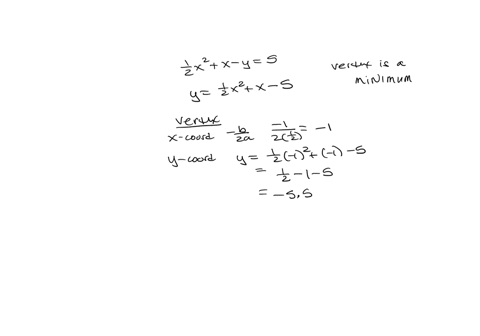 ½x² + x - y = 5
y = ½x² + x - 5
vertex is a
minimum
vertex
x-coord -b/2a -1/2(½) = -1
y-coord y = ½(-1)² + (-1) - 5
= ½ - 1 - 5
= -5.5